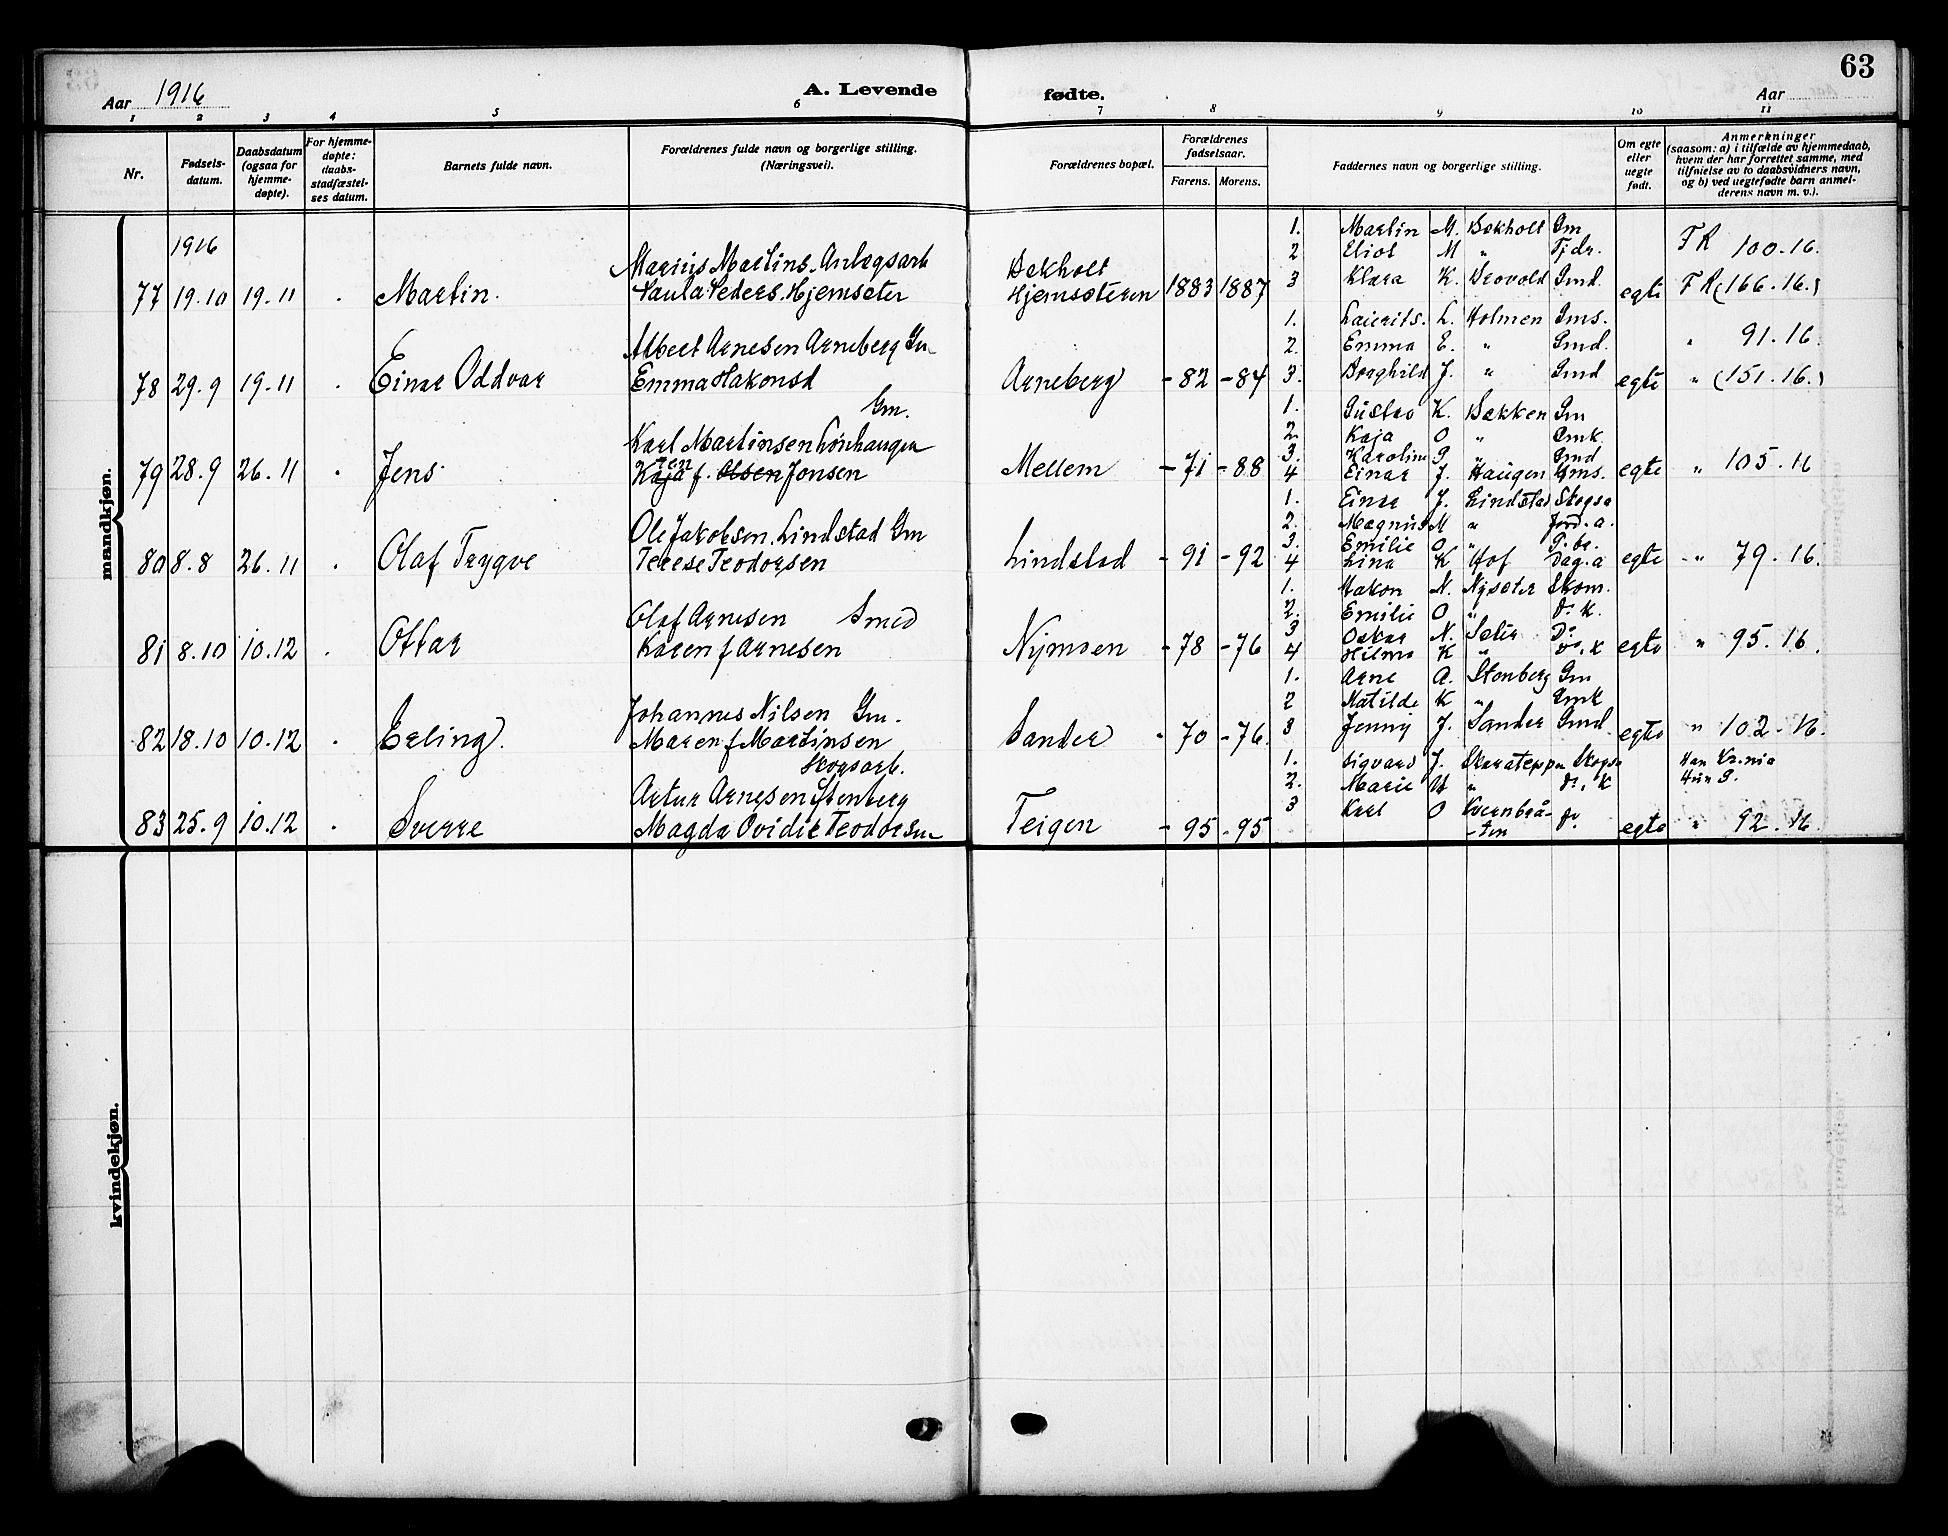 63
Aar 1916
A. Levende fødte.
Aar
1 2 3 4 5 6 7 8 9 10 11
Nr.
Fødsels-
datum.
Daabsdatum
(ogsaa for
hjemme-
døpte).
For hjemme-
døpte:
daabs-
stadfæstel-
ses datum.
Barnets fulde navn.
Forældrenes fulde navn og borgerlige stilling.
(Næringsvei).
Forældrenes bopæl.
Forældrenes
fødselsaar.
Farens. Morens.
Faddernes navn og borgerlige stilling.
Om egte
eller
uegte
født.
Anmerkninger
(saasom: a) i tilfælde av hjemmedaab,
hvem der har forrettet samme, med
tilføielse av to daabsvidners navn,
og b) ved uegtefødte barn anmel-
derens navn m. v.).
mandkjøn.
1916
77 19.10 19.11 Martin.
Marius Martins. Anlægsarb
Paula Peders. Hjemseter
Bekholt
Hjemseteren 1883 1887
1. Martin M. Bekholt Gm
2 Eliot M " Tjdr.
3 Klara K. Brovold Gmd.
egte
FR 100.16.
FR (166.16.)
78 29.9 19.11 Einar Oddvar
Albert Arnesen Arneberg Gm
Emma Hakonsd
Arneberg -82 -84
1. Laurits. L. Holmen Gms.
2. Emma E. " Gmd.
3. Borghild J. " Gmd
egte
" 91.16.
" (151.16.)
79 28.9 26.11 Jens
Gm.
Karl Martinsen Lønhaugen
Kaja f. Olsen Jonsen
Mellem -71 -88
1. Gustav K. Bakken Gm
2. Kaja O " Gmk
3. Karoline G " Gmd
4 Einar J. Haugen Gms.
egte " 105.16
80 8.8 26.11 Olaf Trygve
Ole Jakobsen. Lindstad Gm
Terese Teodorsen
Lindstad -91 -92
1. Einar J. Lindstad Skogsa
2. Magnus M " Jord.a.
3. Emilie O "
4 Lina K Hof Dag.a
egte " 79.16.
81 8.10 10.12 Ottar
Olaf Arnesen Smed
Karen f Arnesen
Nymoen -78 -76
1. Hakon N. Nyseter Skom.
2. Emilie O " do K.
3 Oskar N. Seter Do
4 Hilma K " do. K
egte " 95.16.
82 18.10 10.12 Erling
Johannes Nilsen Gm.
Maren f Martinsen
Sander -70 -76.
1. Arne A. Stenberg Gm
2 Matilde K " Gmk
3 Jenny J. Sander Gmd.
egte " 102.16.
83 25.9 10.12 Sverre
Skogsarb.
Artur Arnesen Stenberg
Magda Ovidie Teodorsen
Teigen -95 -95
1. Sigvard J. Skarateppen Skogsa
2. Marie " do. K
3 Karl O Kvernbrå-
-ten do.
egte
Han Kr.nia
Hun G.
" 92.16.
kvindekjøn.